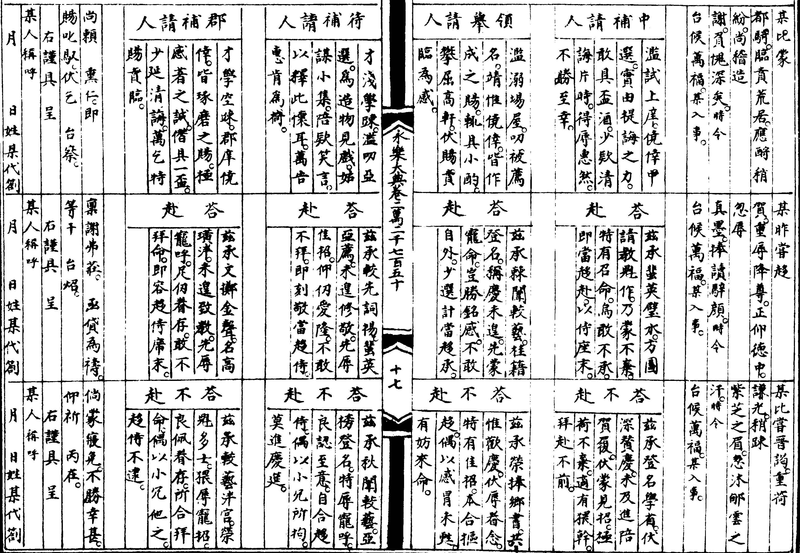 某比蒙
都騎臨賁荒居應酧稍
紛尚稽造
謝實愧深矣時令
台候萬福某入事
中補請人
濫試上庠僥倖甲
選實由提誨之力
敢具盃酒少欵清
誨片時得辱惠然
不勝至幸
領擧請人
濫溺場屋叨被薦
名靖惟僥倖皆作
成之賜輒具小酌
攀屈高軒伏賜賁
臨為感
待補請人
才淺學疎濫叨亞
選為造物見戲
謀小集陪欵笑言
以釋此懷耳萬告
惠肯為荷
郡補請人
才學空疎郡庠僥
倖皆琢磨之賜極
感著之誠僭具一盃
少延清誨萬乞特
賜賁臨
尚賴 惠仁即
賜叱馭伏乞 台察
右謹具 呈
某人稱呼
月 日姓某代劄
某昨嘗趨
賀重辱降尊正仰德中
忽辱
真墨捧讀騂顏時令
台候萬福某入事
荅赴
茲承蜚英璧水方圖
請教興作乃蒙不棄
特有召命焉敢不承
即當趨赴以侍座末
荅赴
茲承棘闈較藝桂籍
登名稱慶未遑先蒙
寵命豈勝銘感不敢
自外少選計當趨承
荅赴
茲承較先詞楊蜚英
亞薦未遑修敬先辱
佳招仰仞愛隆不敢
不拜即刻敬當趨侍
荅赴
茲承文擲金聲名高
璜泮未遑致敬先辱
寵呼足仞眷存敢不
拜命即容趨侍席末
稟謝弗莊丞貸為禱
等干 台炤
右謹具 呈
某人稱呼
月 日姓某代劄
某比嘗晉詣重荷
謙光稍疎
紫芝之眉忽沐郇雲之
汗時令
台候萬福某入事
荅不赴
茲承登名學省伏
深贊慶未及進陪
賀復伏蒙見招極
荷不棄適有猥幹
拜赴不前
荅不赴
茲承榮捧鄉書
惟歡慶伏辱眷念
特有佳招本合振
趨偶以感冒未甦
有妨來命
荅不赴
茲承秋闈較藝亞
榜登名特辱寵呼
良認至意自合趨
侍偶以小冗所拘
莫進慶筵
荅不赴
茲承較藝泮宮榮
魁多士猥辱寵招
良佩眷存所合拜
命偶以小冗他之
趨侍不逮
倘蒙寬免不勝幸甚
仰祈 丙在
右謹具 呈
某人稱呼
月 日姓某代劄
永樂大典卷二萬二千七百五十
十七